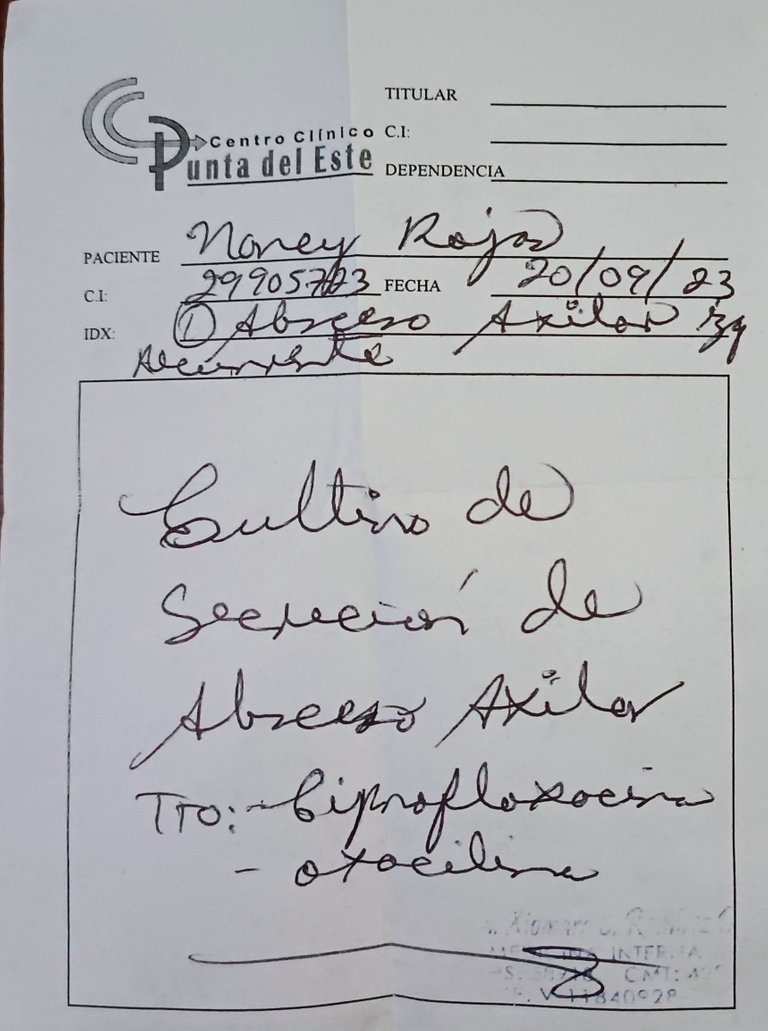 TITULAR
Centro Clínico
Punta del Este
C.I:
DEPENDENCIA
PACIENTE Nancy Rojas
C.I: 29905723 FECHA 20/09/23
IDX: ① Absceso Axilar Izq
Recurrente
Cultivo de
Secreción de
Absceso Axilar
TTO: - Ciprofloxacina
- oxacilina
MEDICINA INTERNA
CMT:
V-11840928